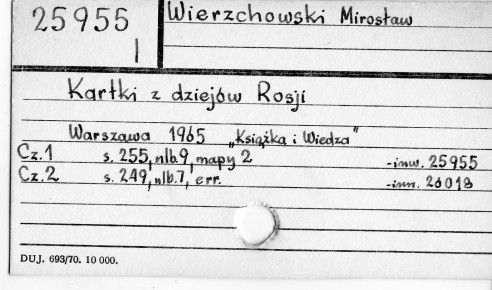 25955
I
Wierzchowski Mirosław
Kartki z dziejów Rosji
Warszawa 1965 „Książka i Wiedza"
Cz.1 s. 255, nlb.9, mapy 2 -inw. 25955
Cz.2 s. 249, nlb.7, err. -inw. 26018
DUJ. 693/70. 10 000.